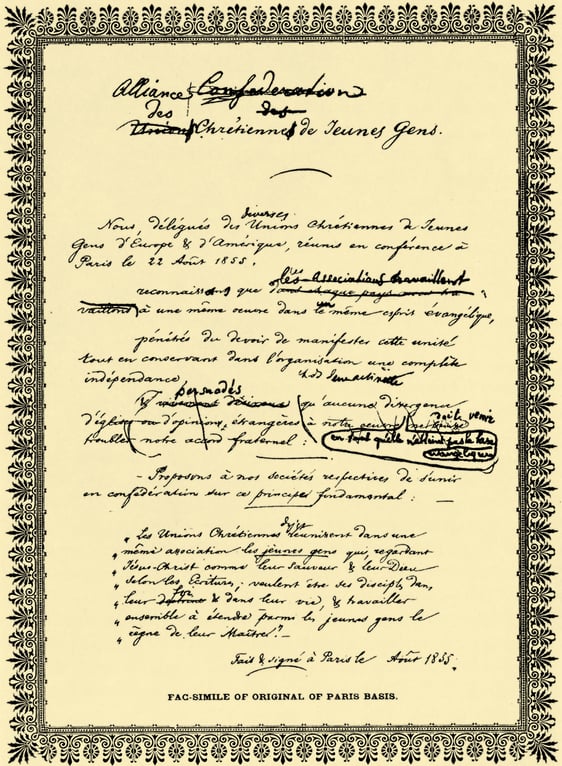 Alliance Confédération
des des
Unions Chrétiennes de Jeunes Gens.
diverses
Nous, délégués des Unions Chrétiennes de Jeunes
Gens d'Europe & d'Amérique, réunis en conférence à
Paris le 22 Août 1855,
les Associations travaillent
reconnaissant que dans chaque pays nous tra
vaillons à une même oeuvre dans le même esprit evangélique,
un
pénétrés du devoir de manifester cette unité
tout en conservant dans l'organisation une complète
indépendance
persuadés
& vivement désireux qu'aucune divergence
doite venir
d'église ou d'opinions, étrangères à notre oeuvre ne
troubler notre accord fraternel :
en tant qu'elle n'atteint pas la base
évangélique
- Proposons à nos sociétés respectives de s'unir
en confédération sur ce principe fondamental : —
"Les Unions Chrétiennes réunissent dans une
" même association les jeunes gens qui, regardant
" Jésus-Christ comme leur Sauveur & leur Dieu
" selon les Ecritures, veulent être ses disciples dans
foi
" leur doctrine & dans leur vie, & travailler
" ensemble à étendre parmi les jeunes gens le
" règne de leur Maître." —
Fait & signé à Paris le Août 1855.
FAC-SIMILE OF ORIGINAL OF PARIS BASIS.